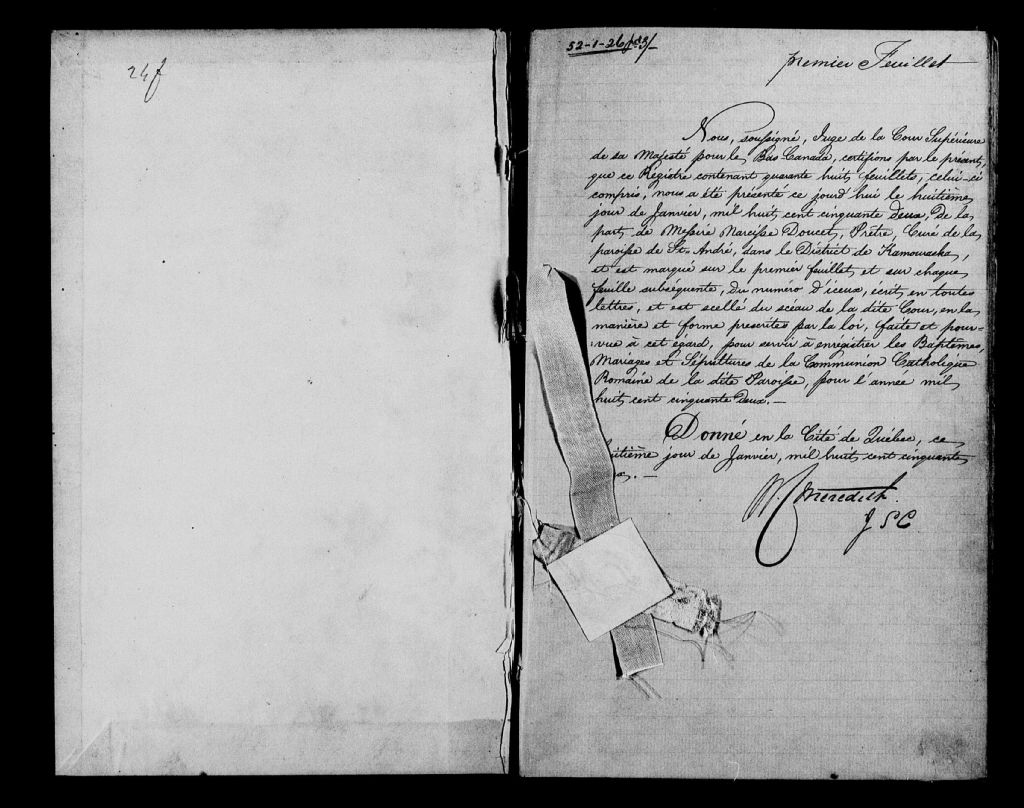 24f
52-1-26
premier Feuillet
Nous, soussigné, Juge de la Cour Supérieure
de sa Majesté pour le Bas Canada, certifions par le présent,
que ce Régistre contenant quarante huit feuillets, celui-ci
compris, nous a été présenté ce jourd'hui le huitième
jour de Janvier, mil huit cent cinquante deux, de la
part de Messire Narcisse Doucet, Prêtre, Curé de la
paroisse de St. André, dans le District de Kamouraska,
et est marqué sur le premier feuillet et sur chaque
feuille subséquente, du numéro d'iceux, écrit en toutes
lettres, et est scellé du sceau de la dite Cour, en la
manière et forme prescrites par la loi, faite et pour-
:vue à cet égard, pour servir à enregistrer les Baptêmes,
Mariages et Sépultures de la Communion Catholique
Romaine de la dite Paroisse, pour l'année mil
huit cent cinquante deux. —
Donné en la Cité de Québec, ce
uitième jour de Janvier, mil huit cent cinquante
ux. —
W. C. Meredith
J S C